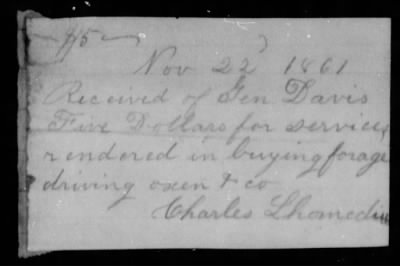 $5
Nov 22 1861
Received of Gen Davis
Five Dollars for services
rendored in buying forage
driving oxen & co
Charles Lhomedieu